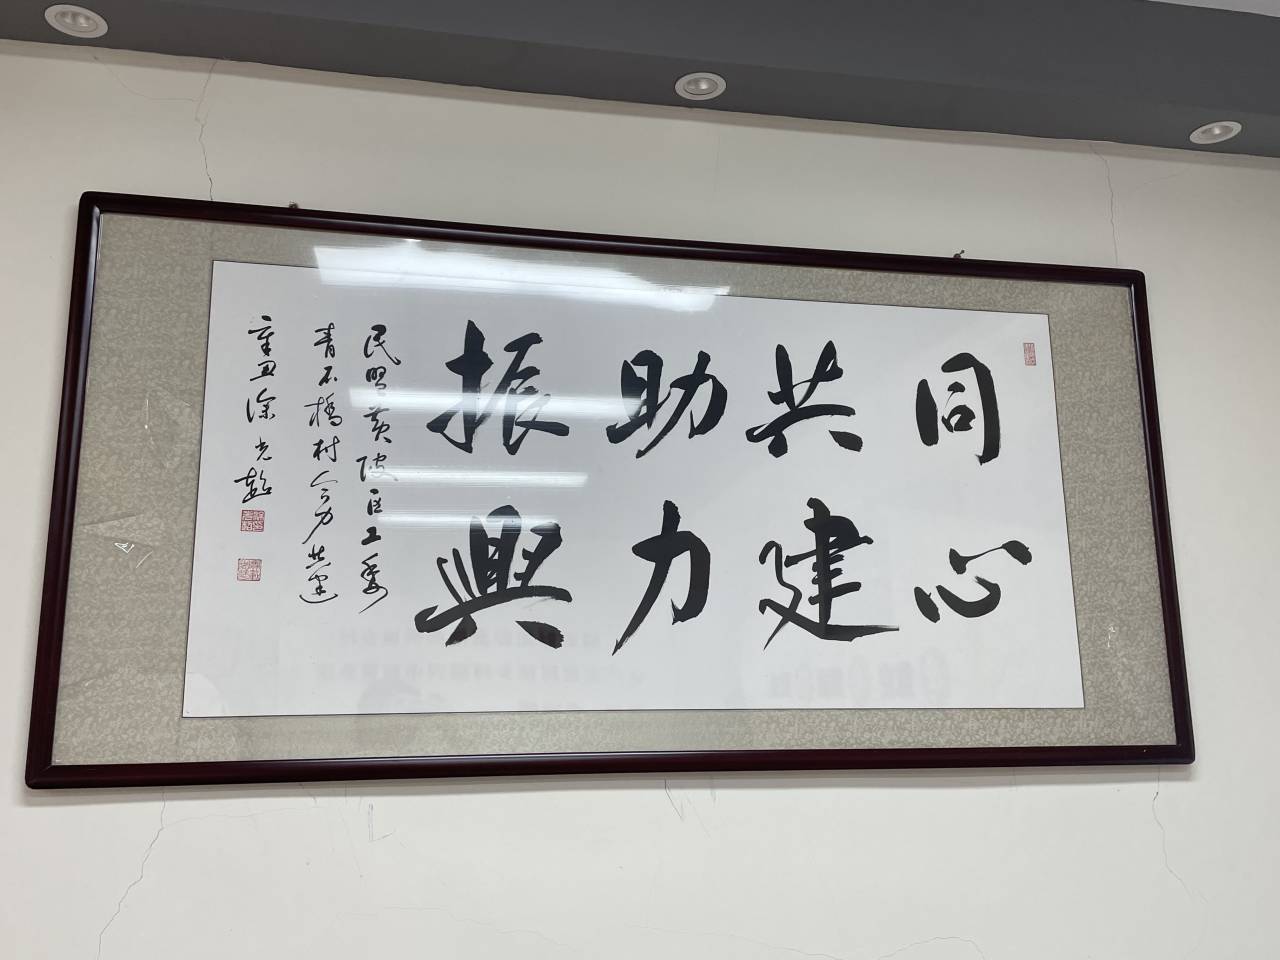 同心
共建
助力
振興
民盟黄陂區工委
青石橋村合力共建
辛丑徐光